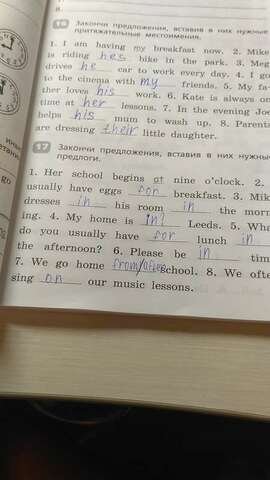 16 Закончи предложения, вставив в них нужные
притяжательные местоимения.
1. I am having my breakfast now. 2. Mike
is riding hes bike in the park. 3. Meg
drives he car to work every day. 4. I go
to the cinema with my friends. 5. My fa-
ther loves his work. 6. Kate is always on
time at her lessons. 7. In the evening Joe
helps his mum to wash up. 8. Parents
are dressing their little daughter.
17 Закончи предложения, вставив в них нужные
предлоги.
1. Her school begins at nine o'clock. 2.
usually have eggs for breakfast. 3. Mike
dresses in his room in the morn
ing. 4. My home is in Leeds. 5. What
do you usually have for lunch in
the afternoon? 6. Please be in tim
7. We go home from/after school. 8. We ofte
sing on our music lessons.
go